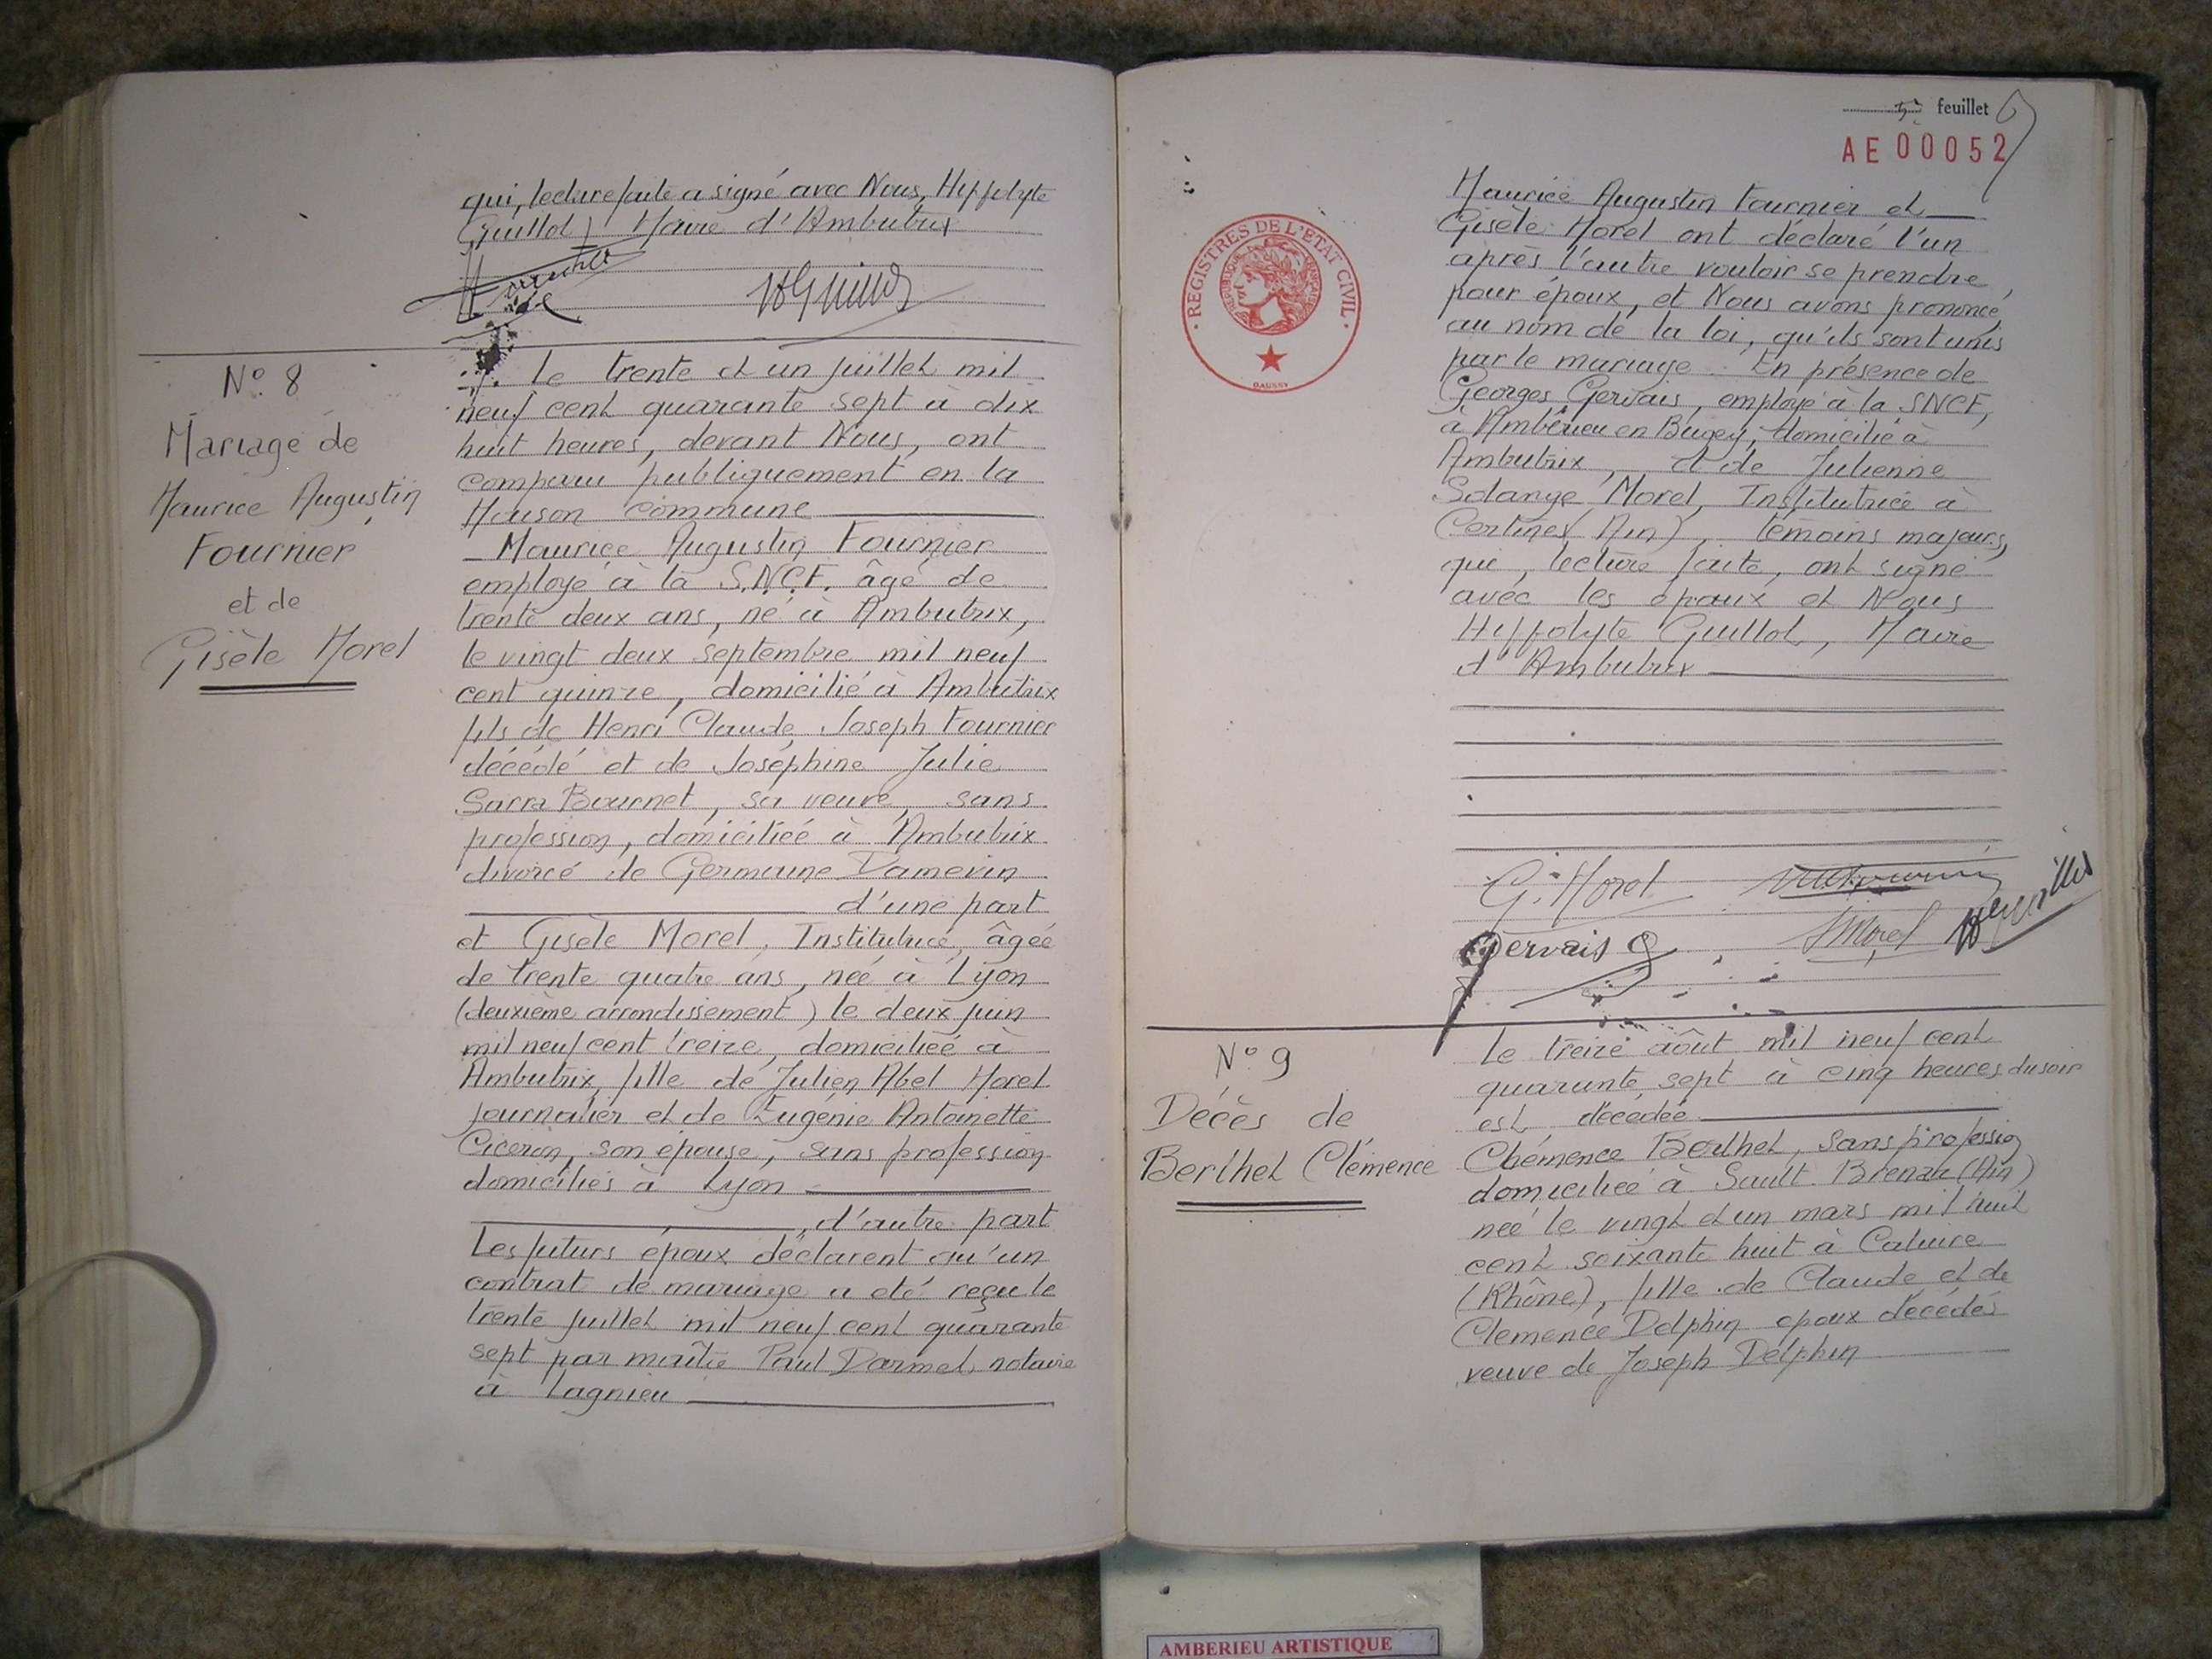 qui, lecture faite a signé avec Nous, Hippolyte
Guillot, Maire d'Ambutrix
N° 8
Mariage de
Maurice Augustin
Fournier
et de
Gisèle Morel
Le trente et un juillet mil
neuf cent quarante sept à dix
huit heures, devant Nous, ont
comparu publiquement en la
Maison commune
Maurice Augustin Fournier
employé à la S.N.C.F. âgé de
trente deux ans, né à Ambutrix,
le vingt deux septembre mil neuf
cent quinze, domicilié à Ambutrix
fils de Henri Claude Joseph Fournier
décédé et de Joséphine Julie
Bournet, sa veuve, sans
profession, domiciliée à Ambutrix
divorcé de Germaine Damevin
d'une part
et Gisèle Morel, Institutrice, âgée
de trente quatre ans, née à Lyon
(deuxième arrondissement) le deux juin
mil neuf cent treize, domiciliée à
Ambutrix, fille de Julien Abel Morel
journalier et de Eugénie Antoinette
Ciceron, son épouse, sans profession
domiciliés à Lyon
, d'autre part
Les futurs époux déclarent qu'un
contrat de mariage a été reçu le
trente juillet mil neuf cent quarante
sept par maître Paul Darmet, notaire
à Lagnieu
feuillet 6
AE 00052
REGISTRES DE L'ETAT CIVIL
RÉPUBLIQUE FRANÇAISE
DAUSSY
Maurice Augustin Fournier et
Gisèle Morel ont déclaré l'un
après l'autre vouloir se prendre
pour époux, et Nous avons prononcé,
au nom de la loi, qu'ils sont unis
par le mariage. En présence de
Georges Gervais, employé à la SNCF,
à Ambérieu en Bugey, domicilié à
Ambutrix, et de Julienne
Solange Morel, Institutrice à
Certines (Ain), témoins majeurs,
qui, lecture faite, ont signé
avec les époux et Nous
Hippolyte Guillot, Maire
d'Ambutrix
G. Morel
Gervais G
SMorel
N° 9
Décès de
Berthet Clémence
Le treize août mil neuf cent
quarante sept à cinq heures du soir
est décédée
Clémence Berthet, sans profession
domiciliée à Sault Brenaz (Ain)
née le vingt et un mars mil huit
cent soixante huit à Caluire
(Rhône), fille de Claude et de
Clemence Delphin époux décédés
veuve de Joseph Delphin
AMBERIEU ARTISTIQUE